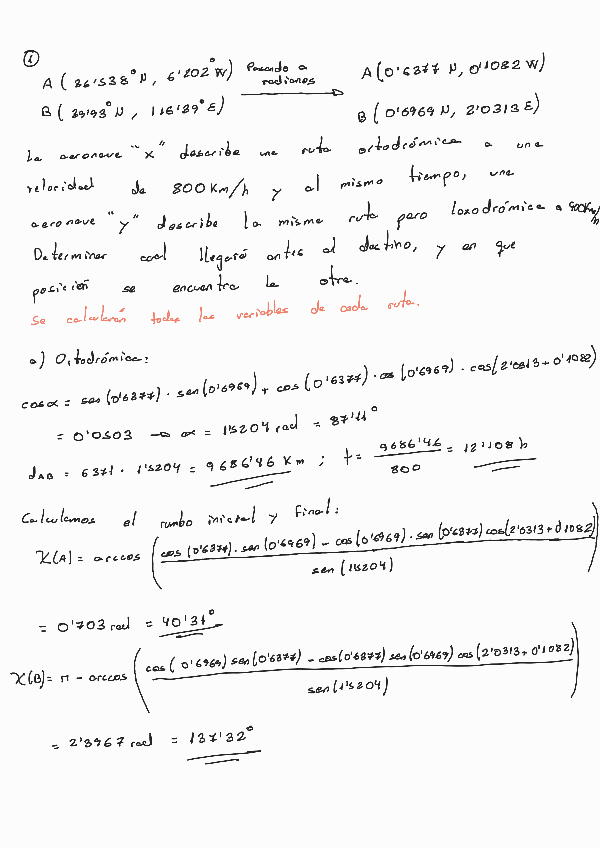 ①
A (36'538° N, 6'202° W) Pasando a radianes A(0'6377 N, 0'1082 W)
B (39'93° N, 116'39° E) B (0'6969 N, 2'0313 E)
La aeronave "x" describe una ruta ortodrómica a una
velocidad de 800 Km/h y al mismo tiempo, una
aeronave "y" describe la misma ruta pero loxodrómica a 900 Km/h
Determinar cual llegará antes al destino, y en que
posición se encuentra la otra.
Se calcularán todas las variables de cada ruta.
a) Ortodrómica:
cos α = sen(0'6377) · sen(0'6969) + cos(0'6377) · cos(0'6969) · cos(2'0313 + 0'1082)
= 0'0503 → α = 1'5204 rad = 87'11°
d_AB = 6371 · 1'5204 = 9686'46 Km ; t = 9686'46 / 800 = 12'108 h
Calculamos el rumbo inicial y final:
χ(A) = arccos (cos(0'6377) · sen(0'6969) - cos(0'6969) · sen(0'6377) cos(2'0313 + 0'1082) / sen(1'5204))
= 0'703 rad = 40'31°
χ(B) = π - arccos (cos(0'6969) sen(0'6377) - cos(0'6377) sen(0'6969) cos(2'0313 + 0'1082) / sen(1'5204))
= 2'3967 rad = 137'32°